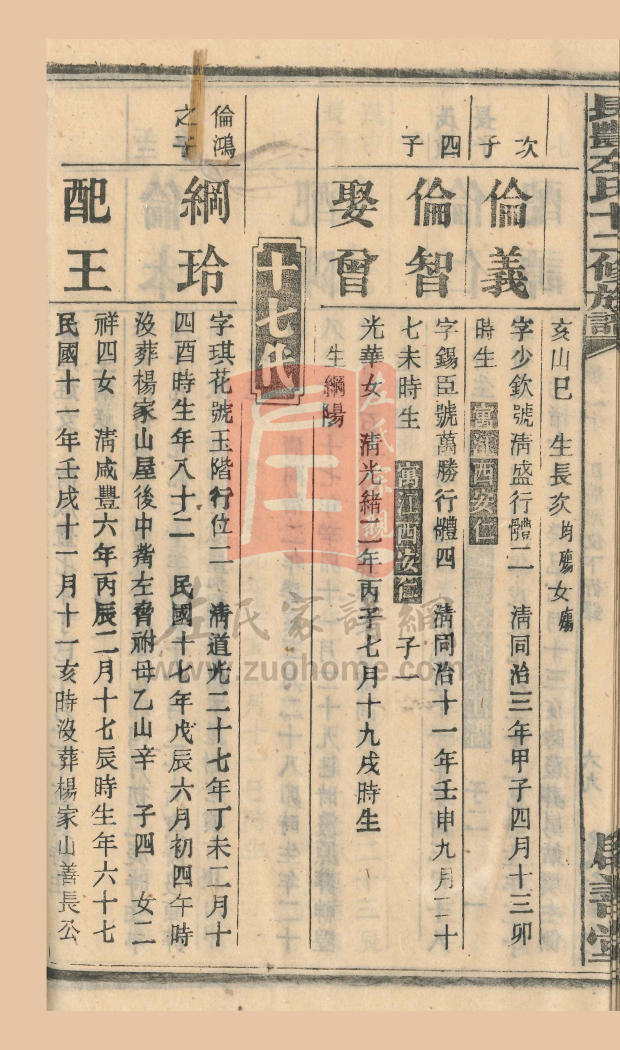 長豐左氏十二修族譜
亥山巳　生長次均殤女殤
次子
倫義
字少欽號清盛行體二　清同治三年甲子四月十三卯
時生　寓江西安仁
四子
倫智
字錫臣號萬勝行體四　清同治十一年壬申九月二十
七未時生　寓江西安仁　子一
娶曾
光華女　清光緒二年丙子七月十九戌時生
生綱陽
十七代
倫鴻之子
綱玲
字琪花號玉階行位二　清道光二十七年丁未二月十
四酉時生年八十二　民國十七年戊辰六月初四午時
沒葬楊家山屋後中嘴左脅祔母乙山辛　子四　女二
配王
祥四女　清咸豐六年丙辰二月十七辰時生年六十七
民國十一年壬戌十一月十一亥時沒葬楊家山善長公
六九
左氏家譜網
www.zuohome.com